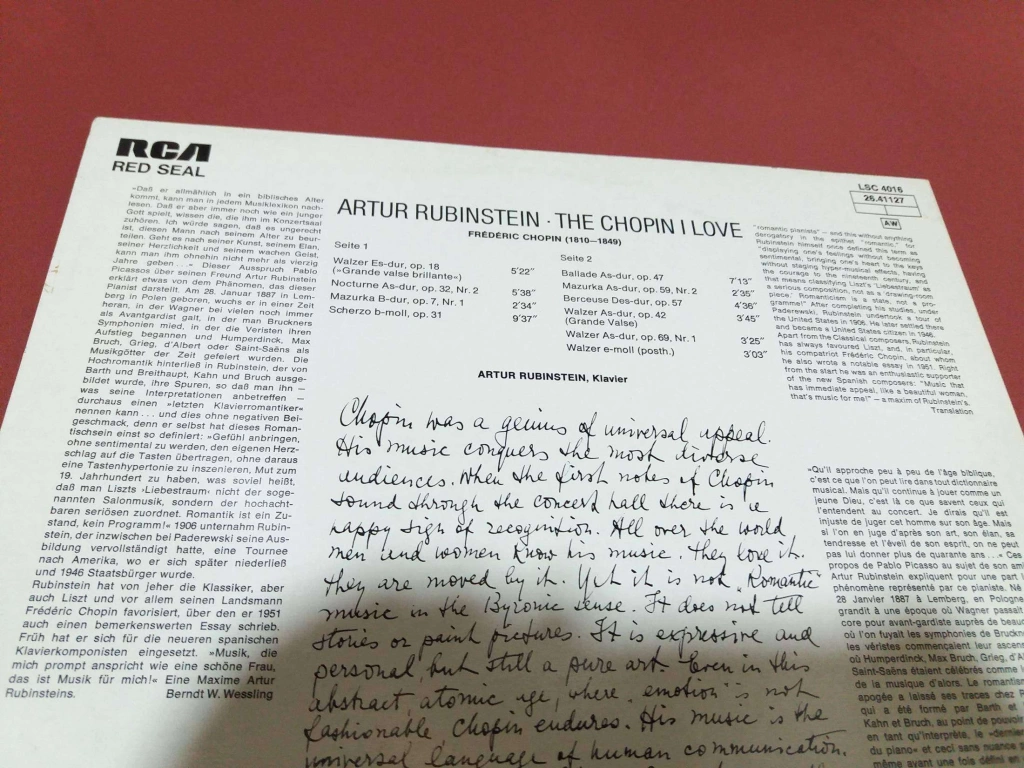 RCA
RED SEAL
LSC 4016
26.41127
AW
ARTUR RUBINSTEIN · THE CHOPIN I LOVE
FRÉDÉRIC CHOPIN (1810—1849)
»Daß er allmählich in ein biblisches Alter
kommt, kann man in jedem Musiklexikon nach-
lesen. Daß er aber immer noch wie ein junger
Gott spielt, wissen die, die ihm im Konzertsaal
zuhören. Ich würde sagen, daß es ungerecht
ist, diesen Mann nach seinem Alter zu beur-
teilen. Geht es nach seiner Kunst, seinem Elan,
seiner Herzlichkeit und seinem wachen Geist,
kann man ihm ohnehin nicht mehr als vierzig
Jahre geben . . .« Dieser Ausspruch Pablo
Picassos über seinen Freund Artur Rubinstein
erklärt etwas von dem Phänomen, das dieser
Pianist darstellt. Am 28. Januar 1887 in Lem-
berg in Polen geboren, wuchs er in einer Zeit
heran, in der Wagner bei vielen noch immer
als Avantgardist galt, in der man Bruckners
Symphonien mied, in der die Veristen ihren
Aufstieg begannen und Humperdinck, Max
Bruch, Grieg, d'Albert oder Saint-Saëns als
Musikgötter der Zeit gefeiert wurden. Die
Hochromantik hinterließ in Rubinstein, der von
Barth und Breithaupt, Kahn und Bruch ausge-
bildet wurde, ihre Spuren, so daß man ihn —
was seine Interpretationen anbetreffen —
durchaus einen »letzten Klavierromantiker«
nennen kann . . . und dies ohne negativen Bei-
geschmack, denn er selbst hat dieses Roman-
tischsein einst so definiert: »Gefühl anbringen,
ohne sentimental zu werden, den eigenen Herz-
schlag auf die Tasten übertragen, ohne daraus
eine Tastenhypertonie zu inszenieren, Mut zum
19. Jahrhundert zu haben, was soviel heißt,
daß man Liszts ›Liebestraum‹ nicht der soge-
nannten Salonmusik, sondern der hochacht-
baren seriösen zuordnet. Romantik ist ein Zu-
stand, kein Programm!« 1906 unternahm Rubin-
stein, der inzwischen bei Paderewski seine Aus-
bildung vervollständigt hatte, eine Tournee
nach Amerika, wo er sich später niederließ
und 1946 Staatsbürger wurde.
Rubinstein hat von jeher die Klassiker, aber
auch Liszt und vor allem seinen Landsmann
Frédéric Chopin favorisiert, über den er 1951
auch einen bemerkenswerten Essay schrieb.
Früh hat er sich für die neueren spanischen
Klavierkomponisten eingesetzt. »Musik, die
mich prompt anspricht wie eine schöne Frau,
das ist Musik für mich!« Eine Maxime Artur
Rubinsteins. Berndt W. Wessling
Seite 1
Walzer Es-dur, op. 18
(»Grande valse brillante«) 5'22”
Nocturne As-dur, op. 32, Nr. 2 5'38”
Mazurka B-dur, op. 7, Nr. 1 2'34”
Scherzo b-moll, op. 31 9'37”
Seite 2
Ballade As-dur, op. 47 7'13”
Mazurka As-dur, op. 59, Nr. 2 2'35”
Berceuse Des-dur, op. 57 4'36”
Walzer As-dur, op. 42
(Grande Valse) 3'45”
Walzer As-dur, op. 69, Nr. 1 3'25”
Walzer e-moll (posth.) 3'03”
ARTUR RUBINSTEIN, Klavier
Chopin was a genius of universal appeal.
His music conquers the most diverse
audiences. When the first notes of Chopin
sound through the concert hall there is a
happy sigh of recognition. All over the world
men and women know his music. They love it.
They are moved by it. Yet it is not "Romantic"
music in the Byronic sense. It does not tell
stories or paint pictures. It is expressive and
personal but still a pure art. Even in this
abstract, atomic age, where emotion is not
fashionable Chopin endures. His music is the
universal language of human communication.
"romantic pianists" — and this without anything
derogatory in the epithet "romantic," for
Rubinstein himself once defined this term as
"displaying one's feelings without becoming
sentimental, bringing one's heart to the keys
without staging hyper-musical effects, having
the courage to the nineteenth century, that
means classifying Liszt's "Liebestraum" as
a serious composition, not as a 'drawing-room
piece.' Romanticism is a state, not a pro-
gramme!" After completing his studies, under
Paderewski, Rubinstein undertook a tour of
the United States in 1906. He later settled there
and became a United States citizen in 1946.
Apart from the classical composers, Rubinstein
has always favoured Liszt, and, in particular,
his compatriot Frédéric Chopin, about whom
he also wrote a notable essay in 1951. Right
from the start he was an enthusiastic supporter
of the new Spanish composers: "Music that
has immediate appeal, like a beautiful woman,
that's music for me!" — a maxim of Rubinstein's.
Translation
»Qu'il approche peu à peu de l'âge biblique,
c'est ce que l'on peut lire dans tout dictionnaire
musical. Mais qu'il continue à jouer comme un
jeune Dieu, c'est là ce que savent ceux qui
l'entendent au concert. Je dirais qu'il est
injuste de juger cet homme sur son âge. Mais
si l'on en juge d'après son art, son élan, sa
tendresse et l'éveil de son esprit, on ne peut
pas lui donner plus de quarante ans . . .« Ces
propos de Pablo Picasso au sujet de son ami
Artur Rubinstein expliquent pour une part
phénomène représenté par ce pianiste. Né
28 Janvier 1887 à Lemberg, en Pologne
grandit à une époque où Wagner passait
core pour avant-gardiste auprès de beauc
où l'on fuyait les symphonies de Bruckne
les véristes commençaient leur ascens
où Humperdinck, Max Bruch, Grieg, d'Al
Saint-Saëns étaient célébrés comme
de la musique d'alors. Le romantism
apogée a laissé ses traces chez R
qui a été formé par Barth et
Kahn et Bruch, au point de pouvoir
en tant qu'interprète, le »dernier
du piano« et ceci sans nuance p
même avant une fois défini en